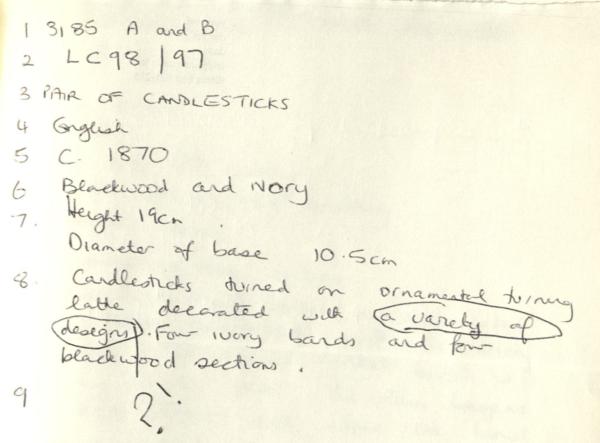 1 3185 A and B
2 LC98/97
3 PAIR OF CANDLESTICKS
4 English
5 C. 1870
6 Blackwood and Ivory
7. Height 19cm.
Diameter of base 10.5cm
8. Candlesticks turned on ornamental turning
lathe decorated with a variety of
designs. Four ivory bands and four
blackwood sections.
9 ?